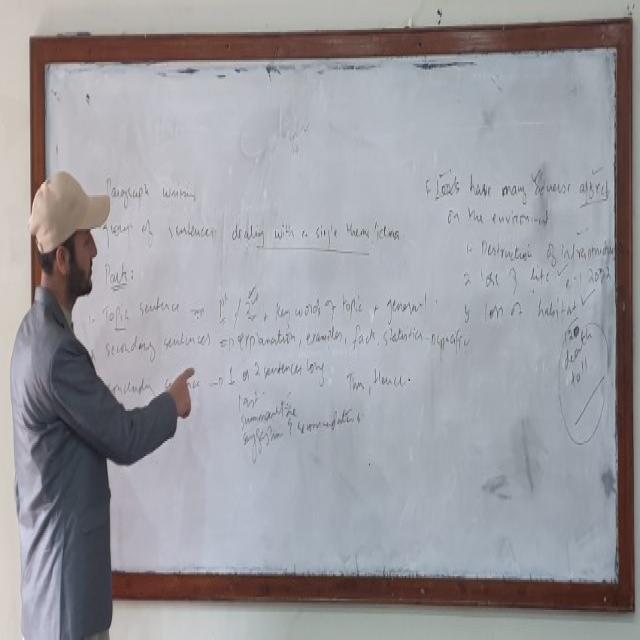 Paragraph writing
group of sentences dealing with a single theme/idea
Parts:
Topic sentence 1st / 2nd, key words of topic, general
secondary sentences explanation, examples, fact, statistics specific
1 or 2 sentences long Thus, Hence.
last
summarize
suggestion
Floods have many adverse affect
on the environment
1. Destruction of infrastructure
2 loss of life
loss of habitat
death
toll